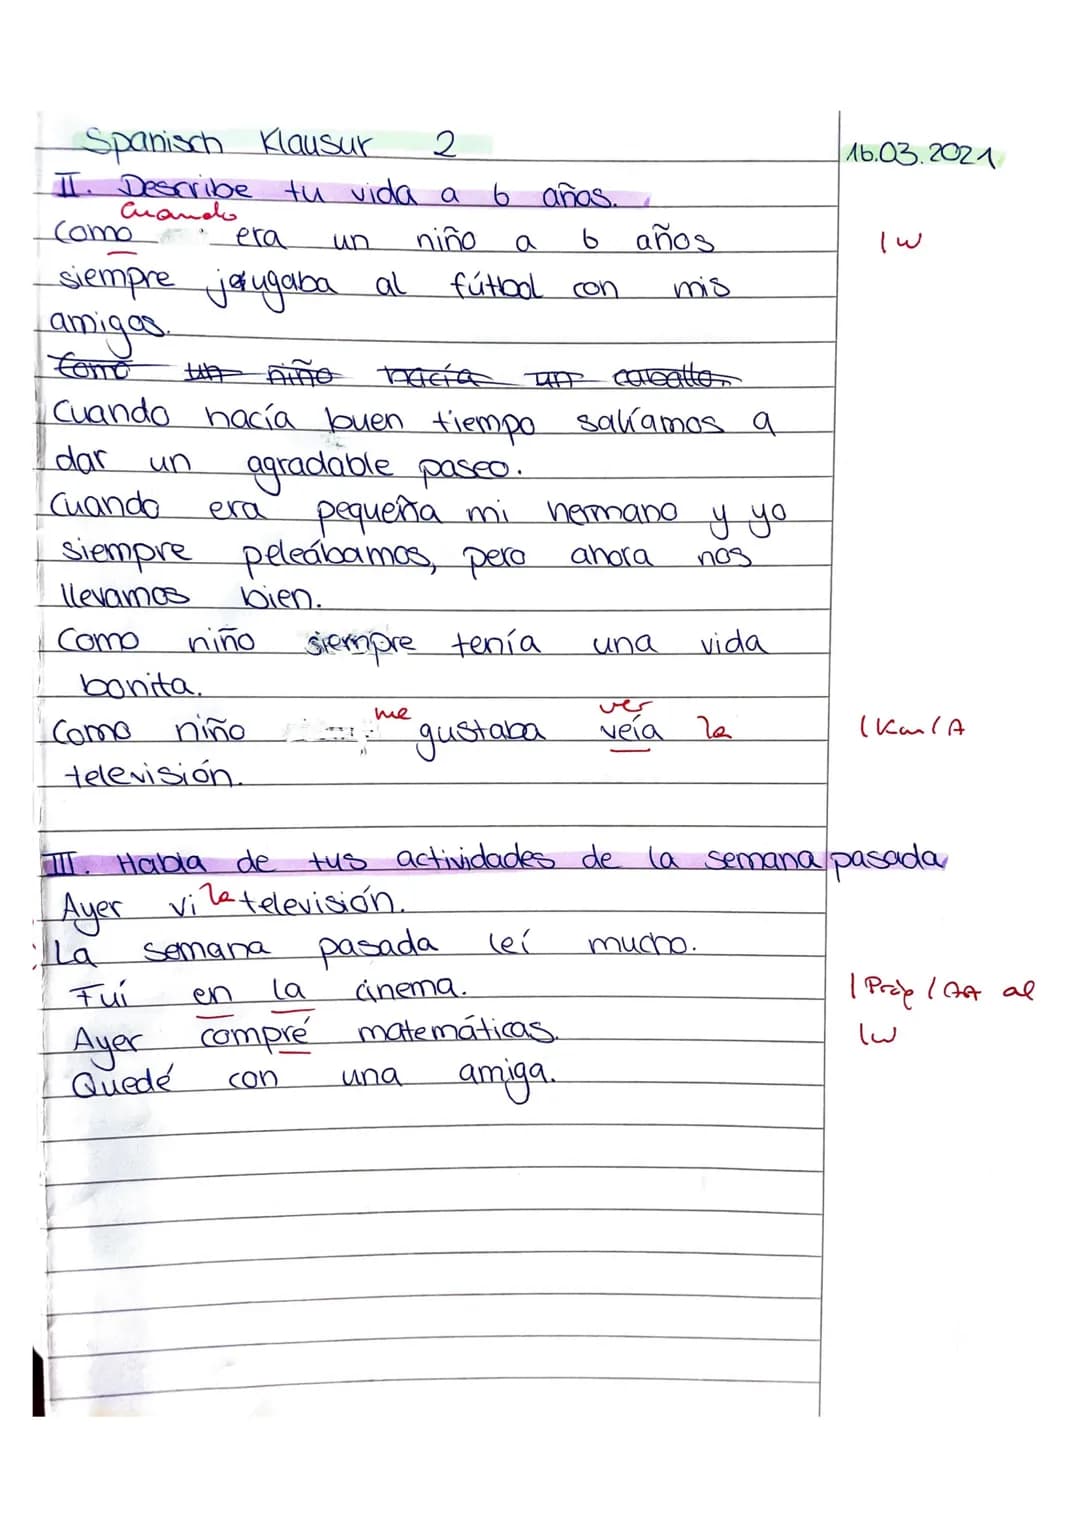 Spanisch Klausur 2
16.03.2021
II. Describe tu vida a 6 años.
Cuando
Como era un niño a 6 años
1 W
siempre jougaba al fútbol con mis
amigos.
Como un niño hacía un caballo.
Cuando hacía buen tiempo salíamos a
dar un agradable paseo.
Cuando era pequeña mi hermano y yo
siempre peleábamos, pero ahora nos
llevamos bien.
Como niño siempre tenía una vida
bonita.
me ver
Como niño gustaba veía la
televisión.
III. Habla de tus actividades de la semana pasada
Ayer vi la televisión.
La semana pasada leí mucho.
Fuí en la cinema.
al
Ayer compré matemáticas.
1 W
Quedé con una amiga.